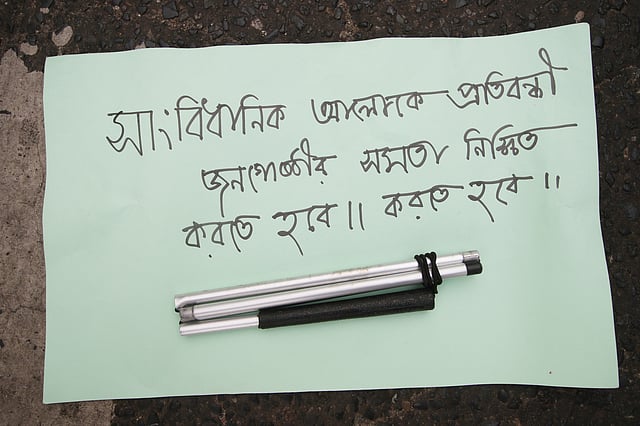 সাংবিধানিক আলোকে প্রতিবন্ধী
জনগোষ্ঠীর সমতা নিশ্চিত
করতে হবে।। করতে হবে।।